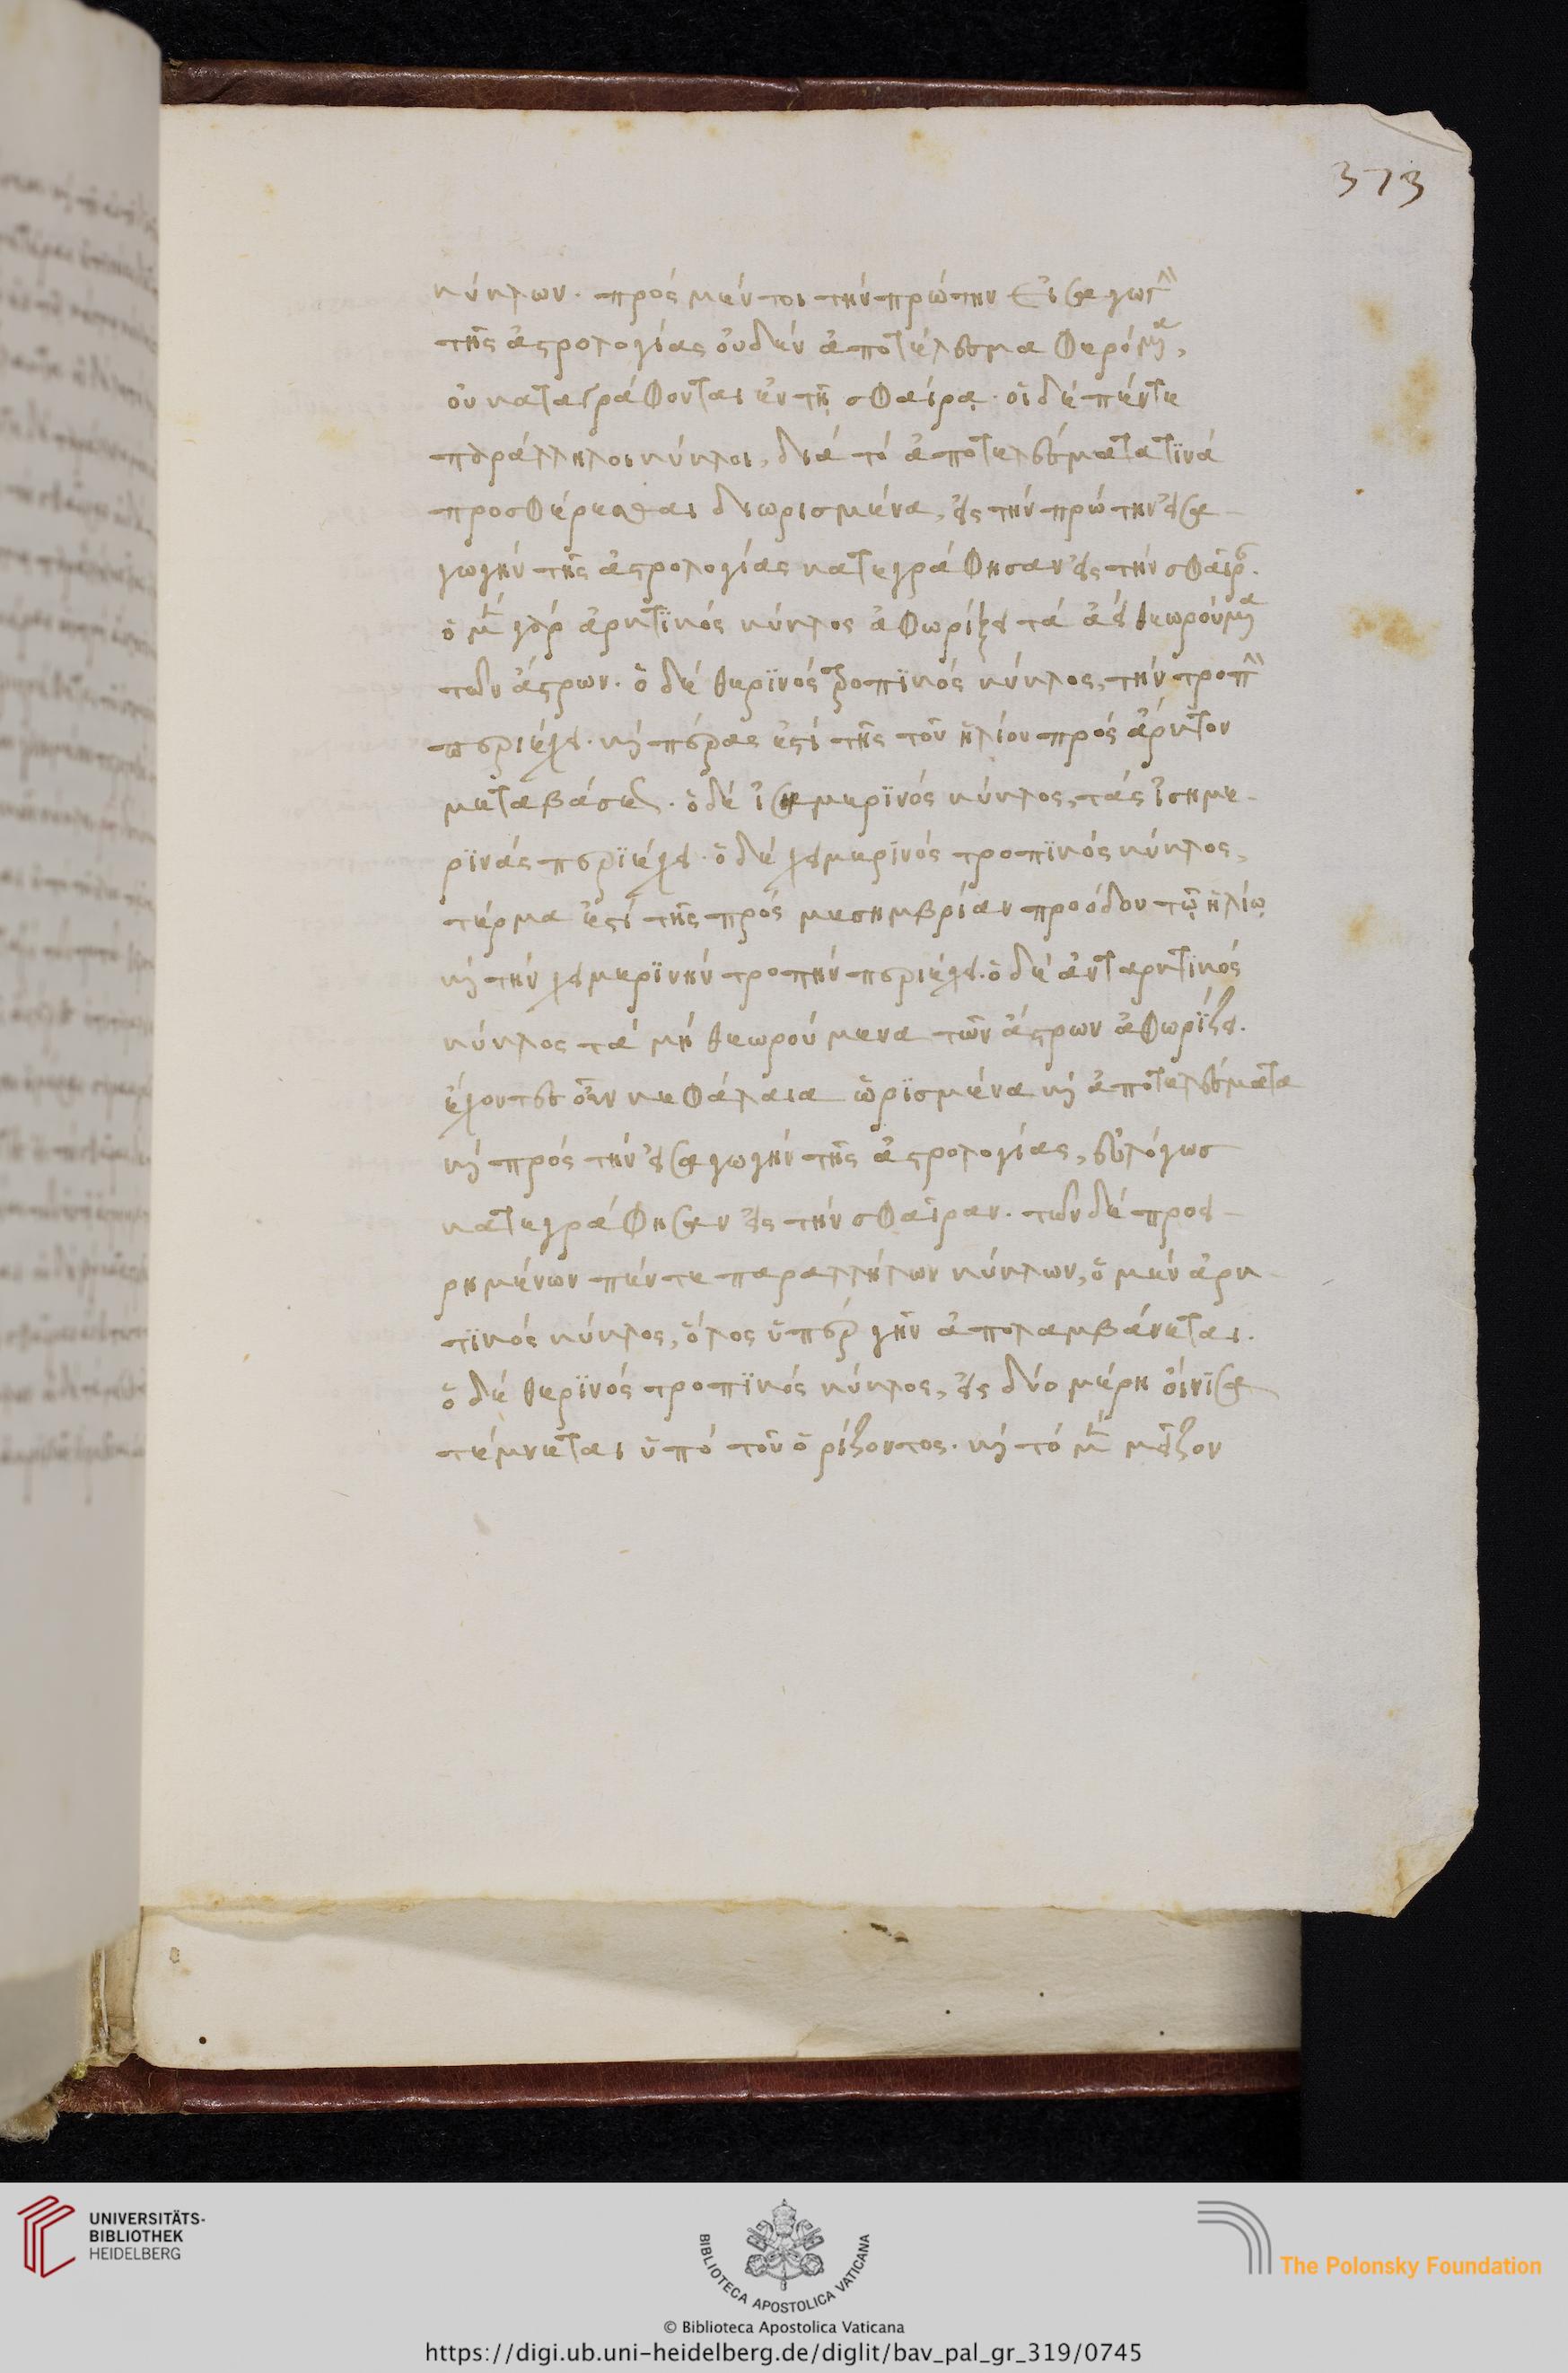 373
κύκλων. πρὸς μέν τοι τὴν πρώτην εἰσαγωγὴν
τῆς ἀστρολογίας οὐδὲν ἀποτέλεσμα φερόμενα,
οὐ καταγράφονται ἐν τῇ σφαίρᾳ. οἱ δὲ πέντε
παράλληλοι κύκλοι, διὰ τὸ ἀποτελέσματα τϊνὰ
προσφέρεσθαι διωρισμένα, εἰς τὴν πρώτην εἰσα-
γωγὴν τῆς ἀστρολογίας κατεγράφησαν εἰς τὴν σφαῖραν.
ὁ μὲν γὰρ ἀρκτϊκὸς κύκλος ἀφωρίζει τὰ ἀεὶ θεωρούμενα
τῶν ἄστρων. ὁ δὲ θερϊνὸς τροπϊκὸς κύκλος, τὴν τροπὴν
περιέχει. καὶ πέρας ἐστὶ τῆς τοῦ ἡλίου πρὸς ἄρκτον
μεταβάσεως. ὁ δὲ ἰσημερϊνὸς κύκλος, τὰς ἰσημε-
ρϊνὰς περϊέχει. ὁ δὲ χειμερϊνὸς τροπϊκὸς κύκλος,
τέρμα ἐστὶ τῆς πρὸς μεσημβρίαν προόδου τῷ ἡλίῳ
καὶ τὴν χειμερϊνὴν τροπὴν περιέχει. ὁ δὲ ἀνταρκτϊκὸς
κύκλος τὰ μὴ θεωρούμενα τῶν ἄστρων ἀφωρϊζει.
ἔχοντες οὖν κεφάλαια ὡρϊσμένα καὶ ἀποτελέσματα
καὶ πρὸς τὴν εἰσαγωγὴν τῆς ἀστρολογίας, εὐλόγως
κατεγράφησαν εἰς τὴν σφαῖραν. τῶν δὲ προει-
ρημένων πέντε παραλλήλων κύκλων, ὁ μὲν ἀρκ-
τϊκὸς κύκλος, ὅλος ὑπὲρ γῆν ἀπολαμβάνεται.
ὁ δὲ θερϊνὸς τροπϊκὸς κύκλος, εἰς δύο μέρη ἄνϊσα
τέμνεται ὑπὸ τοῦ ὁρίζοντος. καὶ τὸ μὲν μεῖζον
UNIVERSITÄTS-
BIBLIOTHEK
HEIDELBERG
BIBLIOTECA APOSTOLICA VATICANA
The Polonsky Foundation
© Biblioteca Apostolica Vaticana
https://digi.ub.uni-heidelberg.de/diglit/bav_pal_gr_319/0745